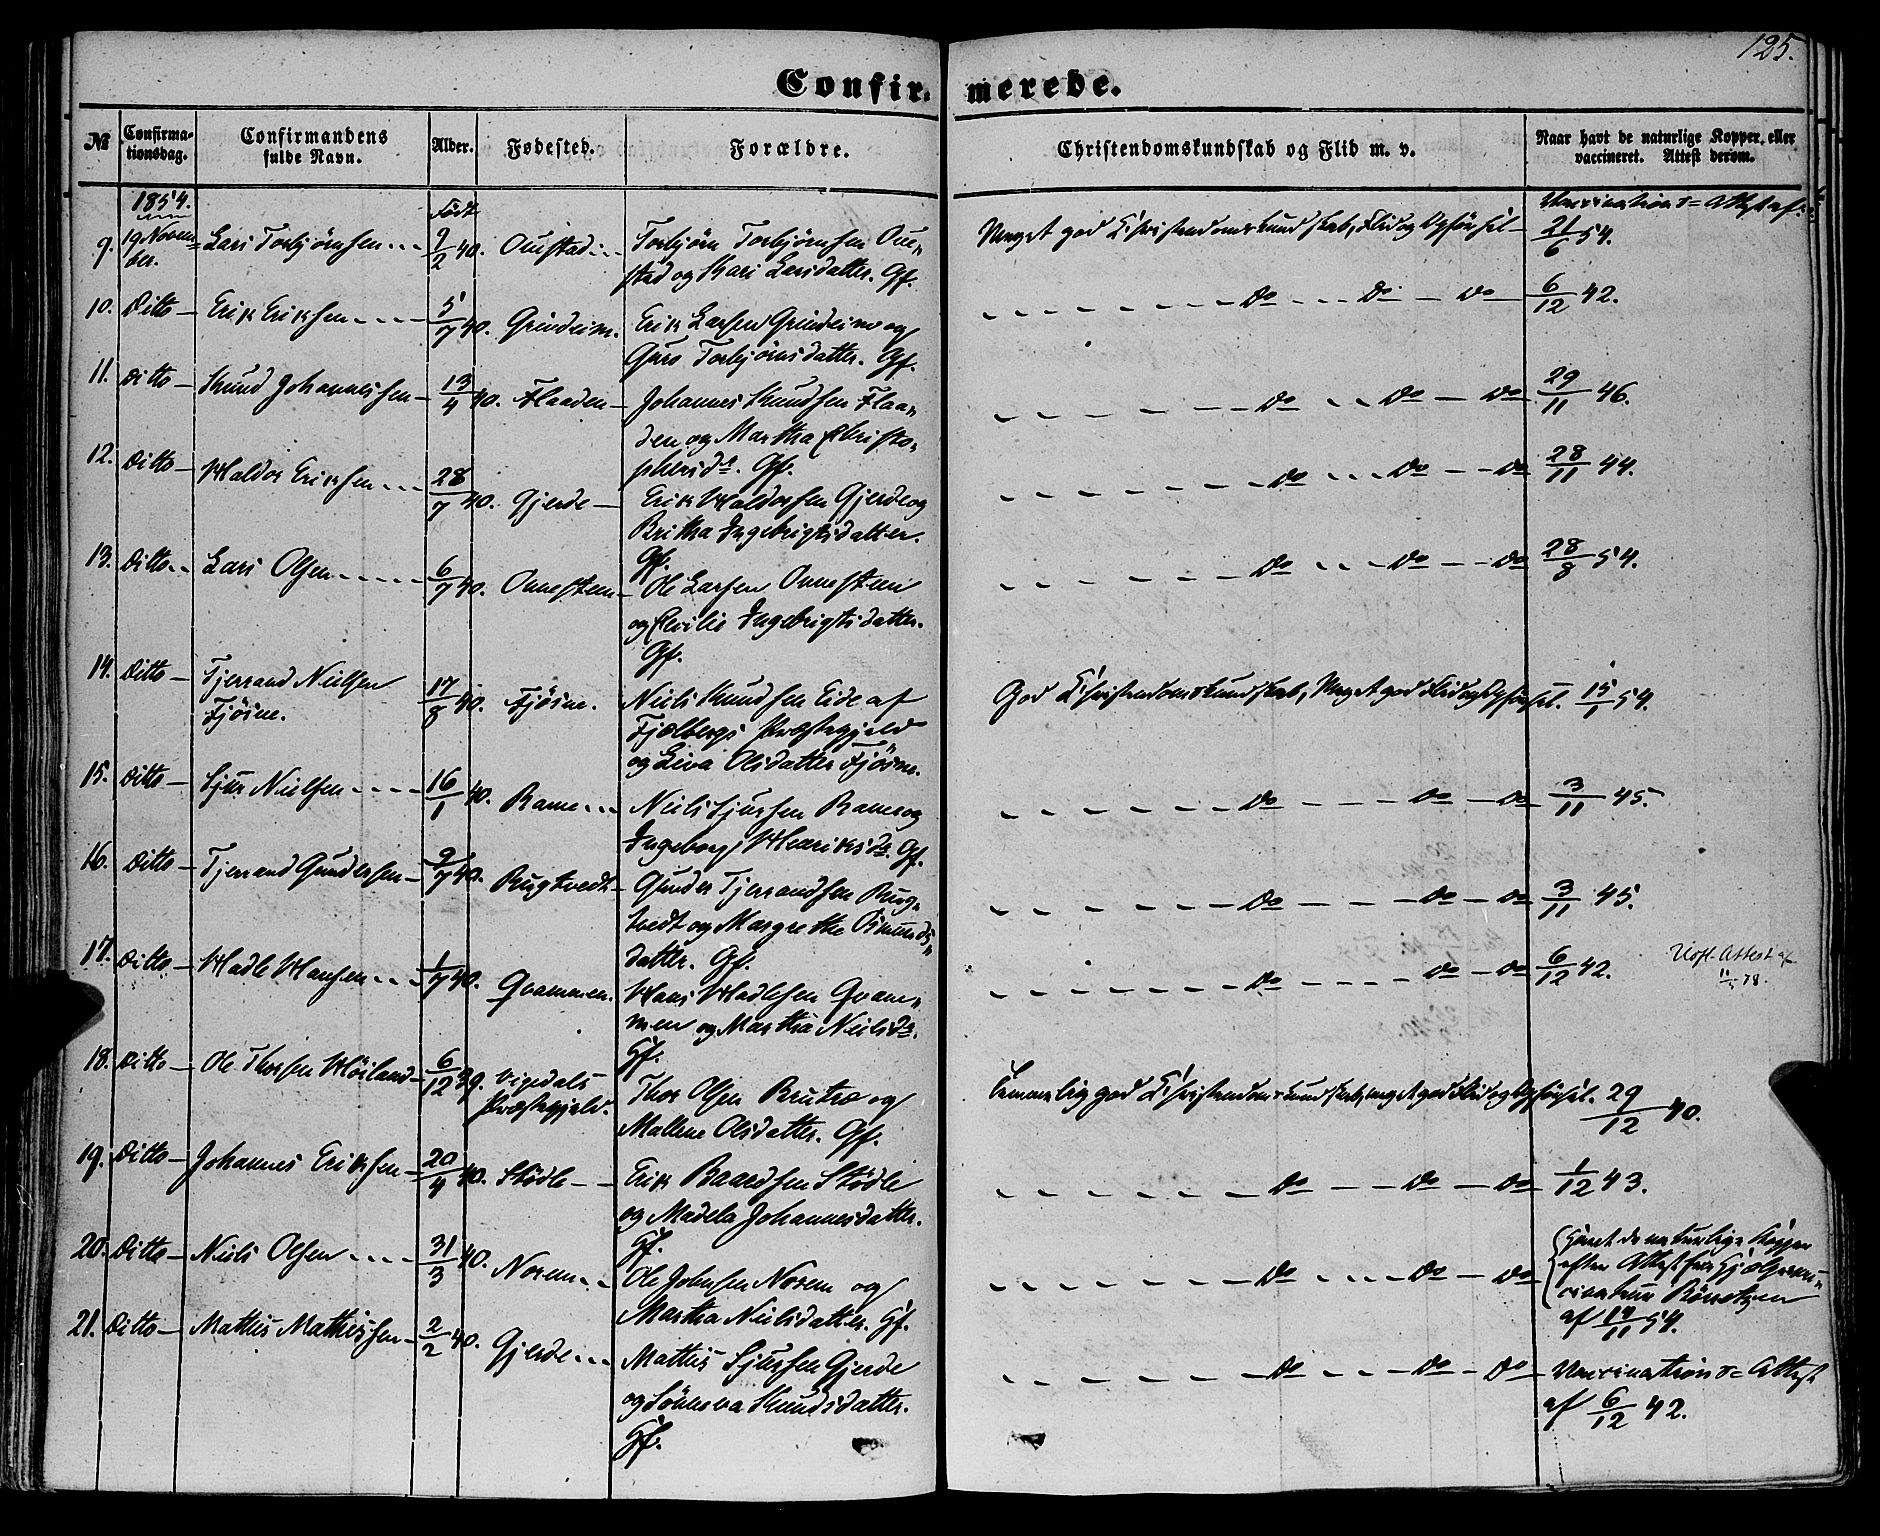 125.
Confirmerede.
№
Confirma-
tionsdag.
Confirmandens
fulde Navn.
Alder.
Fødested.
Forældre.
Christendomskundskab og Flid m. v.
Naar havt de naturlige Kopper, eller
vaccineret. Attest derom.
1854.
Født
Vaccinations= Attest af:
9. 19 Novem-
ber. Lars Torbjørnsen 9/2 40. Torbjørn Torbjørnsen
stad og Kari Larsdatter. Gf.
Meget god Christendomskundskab, Flid og Opførsel - 21/6 54.
10. Ditto - Erik Eriksen 5/7 40. Grindeim. Erik Larsen Grindeim og
Guro Torbjørnsdatter. Gf.
Do Do Do 6/12 42.
11. Ditto - Knud Johannessen 13/4 40. Flaaden Johannes Knudsen Flaa-
den og Martha Christo-
phersd. Gf.
Do Do Do 29/11 46.
12. Ditto - Haldor Eriksen 28/7 40. Gjerde Erik Haldorsen Gjerde og
Britha Ingebrigtsdatter.
Gf.
Do Do Do 28/11 44.
13. Ditto Lars Olsen 6/7 40. Onnesteen Ole Larsen Onnesteen
og Cecilie Ingebrigtsdatter.
Gf.
Do Do Do 28/8 54.
14. Ditto - Tjerrand Nielsen
Fjøsne. 17/8 40. Fjøsne. Niels Knudsen Eide af
Fjelbergs Præstegjeld
og Siva Olsdatter Fjøsne.
God Christendomskundskab, Meget god Flid og Opførsel. 15/1 54.
15. Ditto - Sjur Nielsen 16/1 40. Rame Niels Sjursen Rame og
Ingeborg Henriksd. Gf.
Do Do Do 3/11 45.
16. Ditto - Tjerrand Gundersen 9/7 40. Rugtvedt Gunder Tjerrandsen Rug-
tvedt og Margrethe Osmunds-
datter. Gf.
Do Do Do 3/11 45.
17. Ditto - Hadle Hansen 1/7 40. Qvammen. Hans Hadlesen Qvam-
men og Martha Nielsd.
Gf.
Do Do Do 6/12 42.
Attest
78.
18. Ditto - Ole Thorsen Høiland 6/12 39. Vigedals
Præstegjeld. Thor Olsen Brutræ og
Mallene Olsdatter. Gf.
Temmelig god Christendomskundskab, meget god Flid og Opførsel. 29/12 40.
19. Ditto - Johannes Eriksen 20/4 40. Stødle Erik Baardsen Stødle
og Madela Johannesdatter.
Gf.
Do Do Do 1/12 43.
20. Ditto - Niels Olsen 31/3 40. Norem Ole Johnsen Norem og
Martha Nielsdatter. Gf.
Do Do Do havt de naturlige Kopper
efter Attest fra Hjælpevac-
cinateur
af 17/11 54.
21. Ditto - Mathis Mathissen 2/2 40. Gjerde Mathis Sjursen Gjerde
og Sønneva Knudsdatter.
Gf.
Do Do Do Vaccinations= Attest
af 6/12 42.